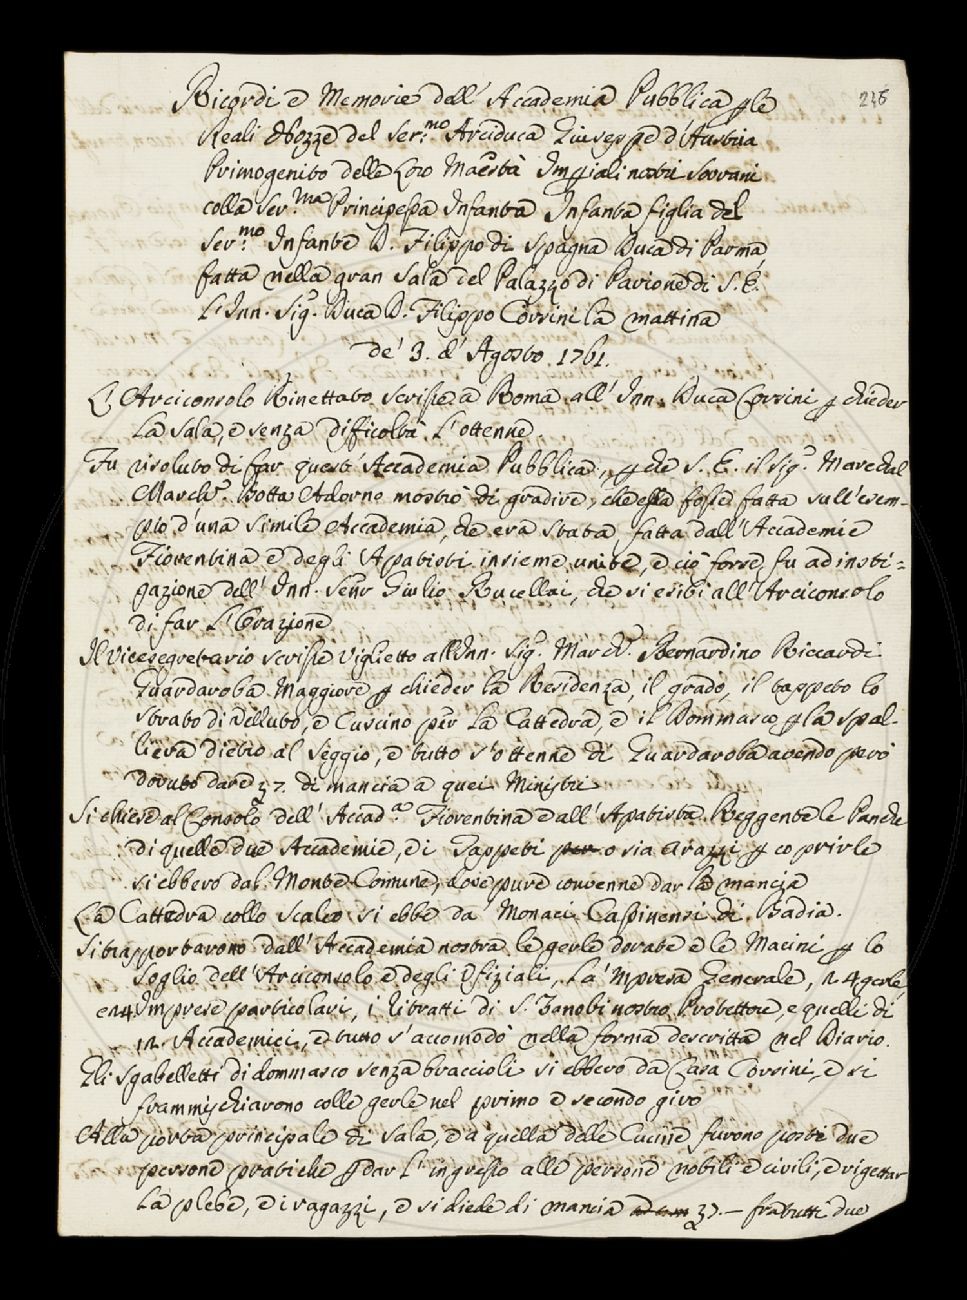 236
Ricordi e Memorie dell' Accademia Pubblica p le
Reali Nozze del Ser.mo Arciduca Giuseppe d'Austria
Primogenito delle Loro Maestà Impiali nostri Sovrani
colla Ser.ma Principessa Infanta Infanta figlia del
Ser.mo Infante D. Filippo di Spagna Duca di Parma,
fatta nella gran Sala del Palazzo di Parione di S. E.
L'Inn. Sig. Duca D. Filippo Corsini la mattina
de' 3. d' Agosto 1761.
L'Arciconsolo Rinettato scrisse a Roma all' Inn. Duca Corsini p chieder
la sala, e senza dificoltà l'ottenne
Fu risoluto di far quest' Accademia Pubblica, p che S. E. il Sig. Marescial
March. Botta Adorno mostrò di gradire, che essa fosse fatta sull'esem-
pio d'una simile Accademia, che era stata fatta dall'Accademie
Fiorentina e degli Apatisti insieme unite, e ciò forse fu ad insti=
gazione dell' Inn. Senr Giulio Rucellai, che si esibì all'Arciconsolo
di far l'Orazione
Il Vicesegretario scrisse Viglietto all'Inn. Sig. March. Bernardino Riccardi
Guardaroba Maggiore p chieder la Residenza, il grado, il tappeto lo
strato di velluto, e Cuscino per la Cattedra, e il Dommasco p la spal-
liera dietro al Seggio, e tutto s'ottenne di Guardaroba avendo però
dovuto dare 7. di mancia a quei Ministri
Si chiese al Consolo dell' Accad.a Fiorentina e all' Apatista Reggente le Panche
di quelle due Accademie, e i Tappeti per o sia arazzi p coprirle
si ebbero dal Monte Comune, dove pure convenne dar la mancia
La Cattedra collo scaleo si ebbe da Monaci Cassinensi di Badia.
Si trapportarono dall' Accademia nostra le gerle dorate e le Macini p lo
soglio dell' Arciconsolo e degli Ofiziali, la 'mpresa Generale, 24 gerle,
e 24 Imprese particolari, i ritratti di S. Zanobi nostro Protettore, e quelli di
12. Accademici, e tutto s'accomodò nella forma descritta nel Diario.
Gli sgabelletti di dommasco senza braccioli si ebbero da Casa Corsini, e si
frammischiarono colle gerle nel primo e secondo giro
Alla porta principale di Sala, e a quella delle Cucine furono poste due
persone pratiche p dar l' ingresso alle persone nobili e civili, e rigettar
la plebe, e i ragazzi, e si diede di mancia fra tutti due